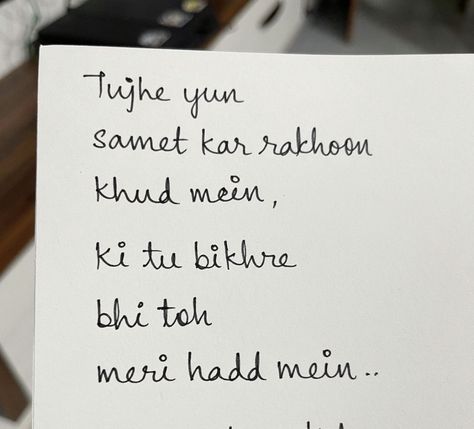 Tujhe yun
samet kar rakhoon
khud mein,
ki tu bikhre
bhi toh
meri hadd mein..